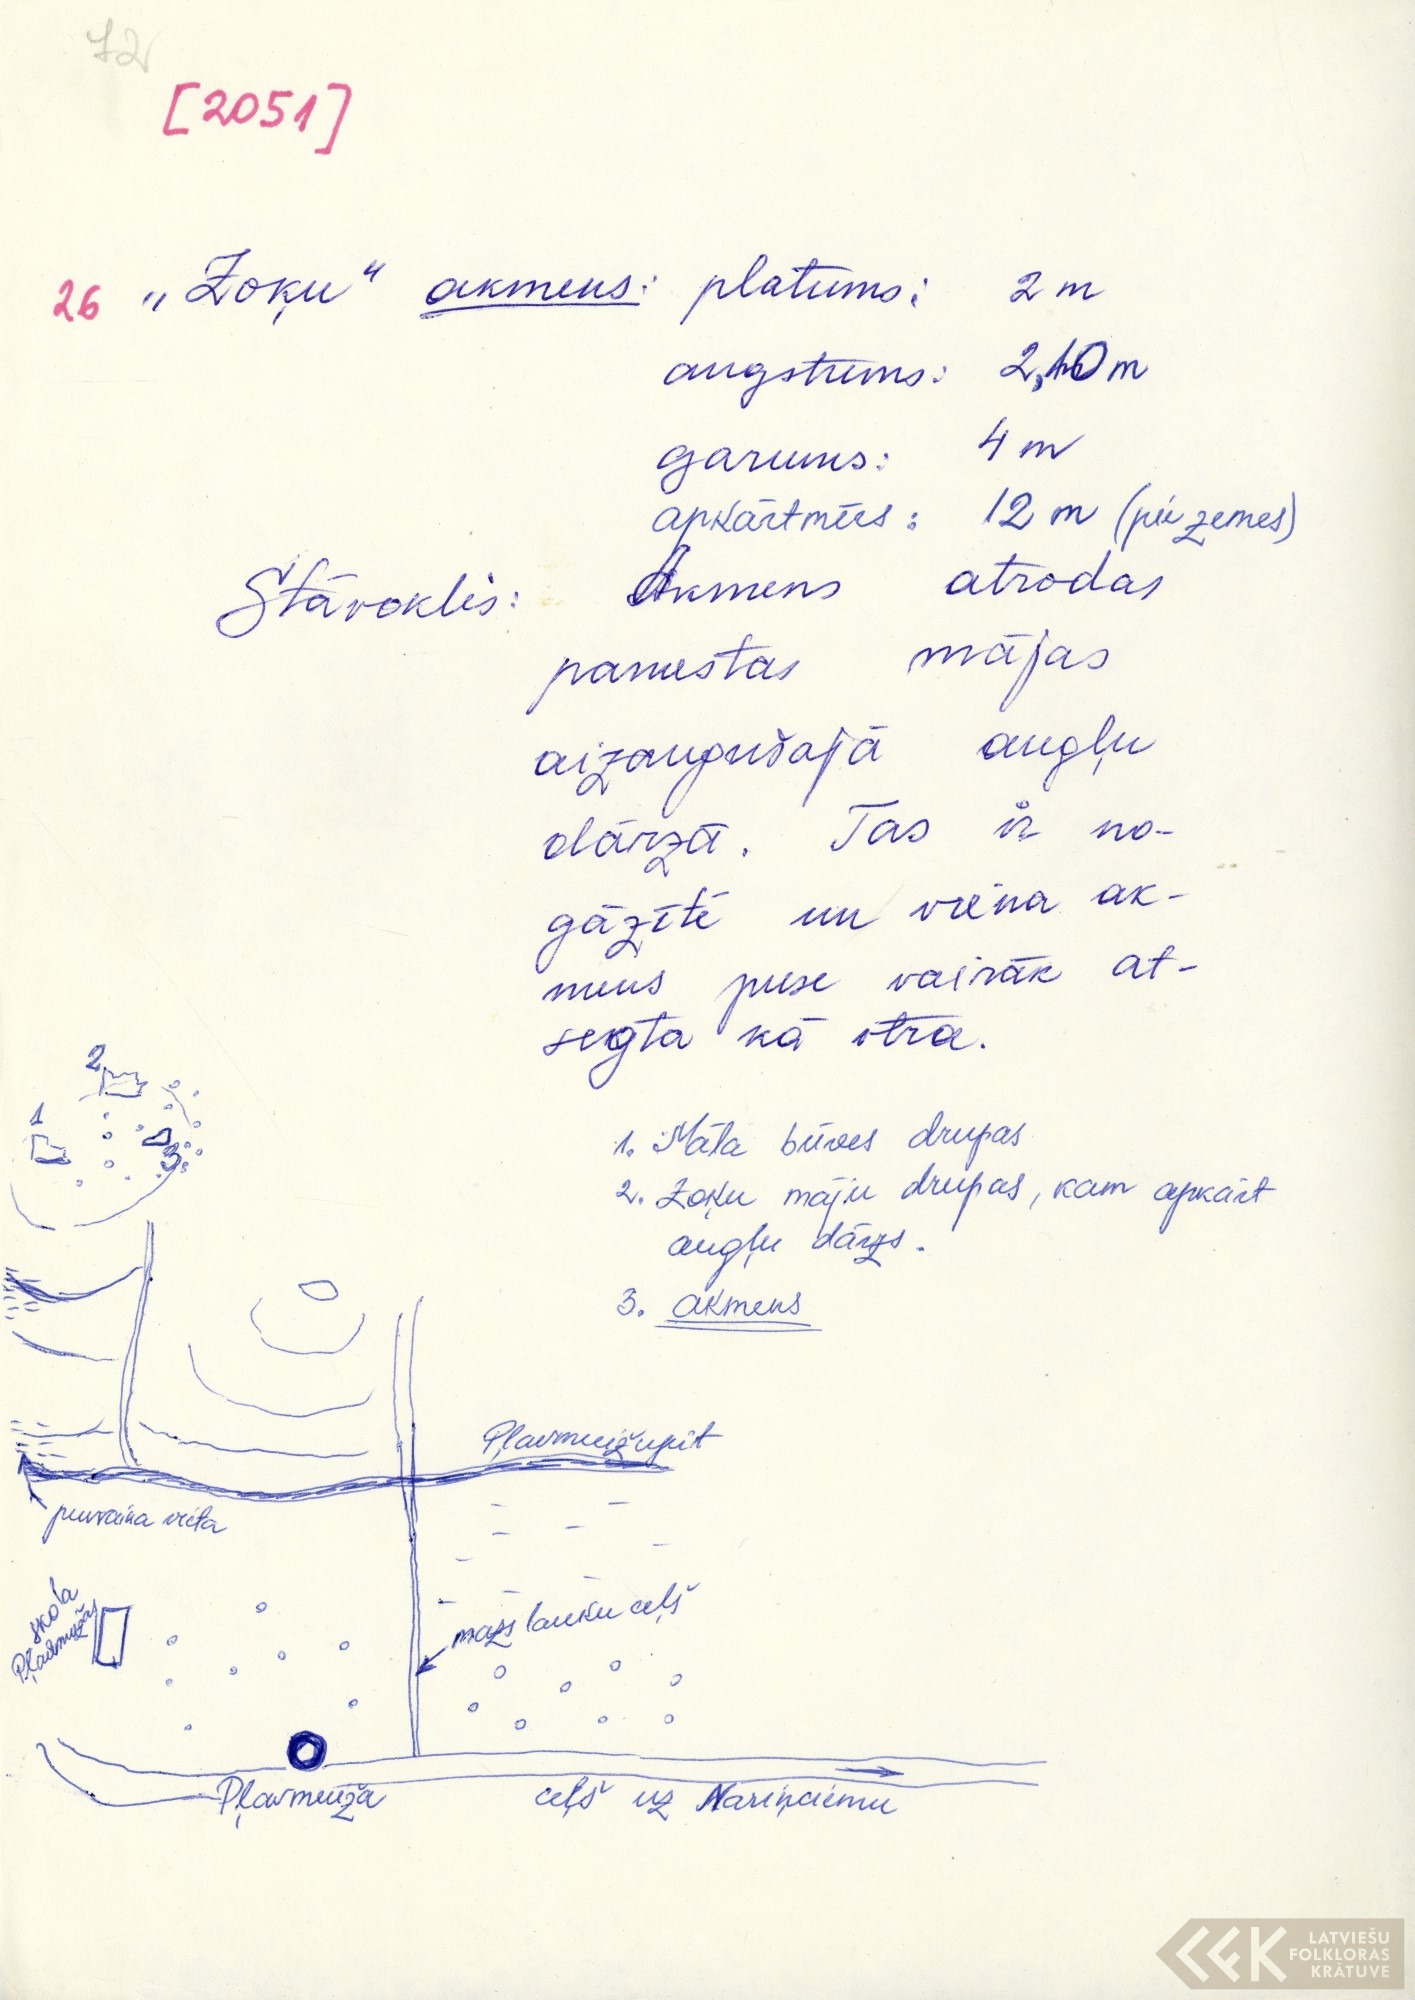 72
[2051]
26 „Zoķu" akmens: platums: 2 m
augstums: 2,10 m
garums: 4 m
apkārtmērs: 12 m (pie zemes)
Stāvoklis: Akmens atrodas
pamestas mājas
aizaugušajā augļu
dārzā. Tas ir no-
gāzītē un viena ak-
mens puse vairāk at-
segta kā otra.
2
1
3
1. Māla būves drupas
2. Zoķu māju drupas, kam apkārt
augļu dārzs.
3. akmens
Pļavmuižupīt
purvaina vieta
skola
Pļavmuižas
mazs lauku ceļš
Pļavmuiža
ceļš uz Nariņciemu
LATVIEŠU
FOLKLORAS
KRĀTUVE